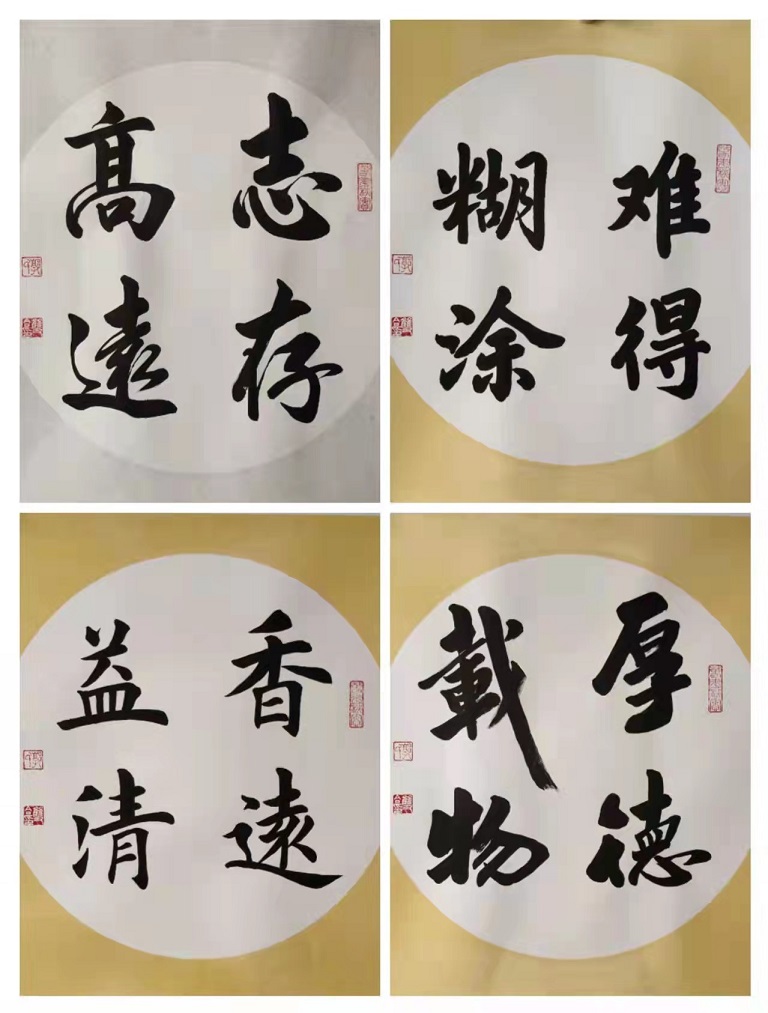 志存
高遠
难得
糊涂
香遠
益清
厚德
載物